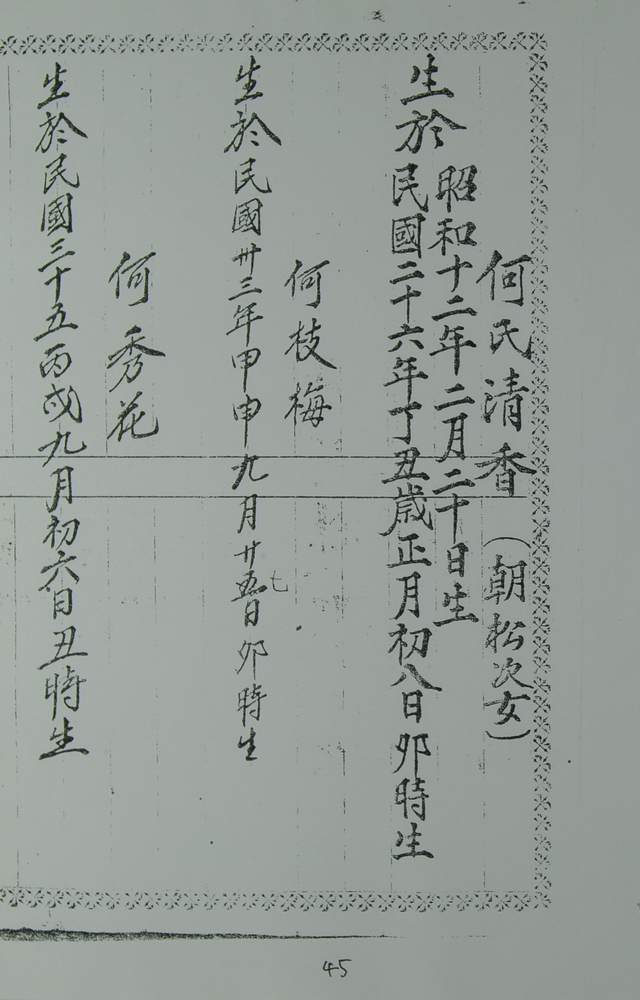 何氏清香（朝松次女）
昭和十二年二月二十日生
生於民國二十六年丁丑歲正月初八日卯時生
何枝梅
生於民國卅三年甲申九月廿五日卯時生
七
何秀花
生於民國三十五丙戌九月初六日丑時生
45